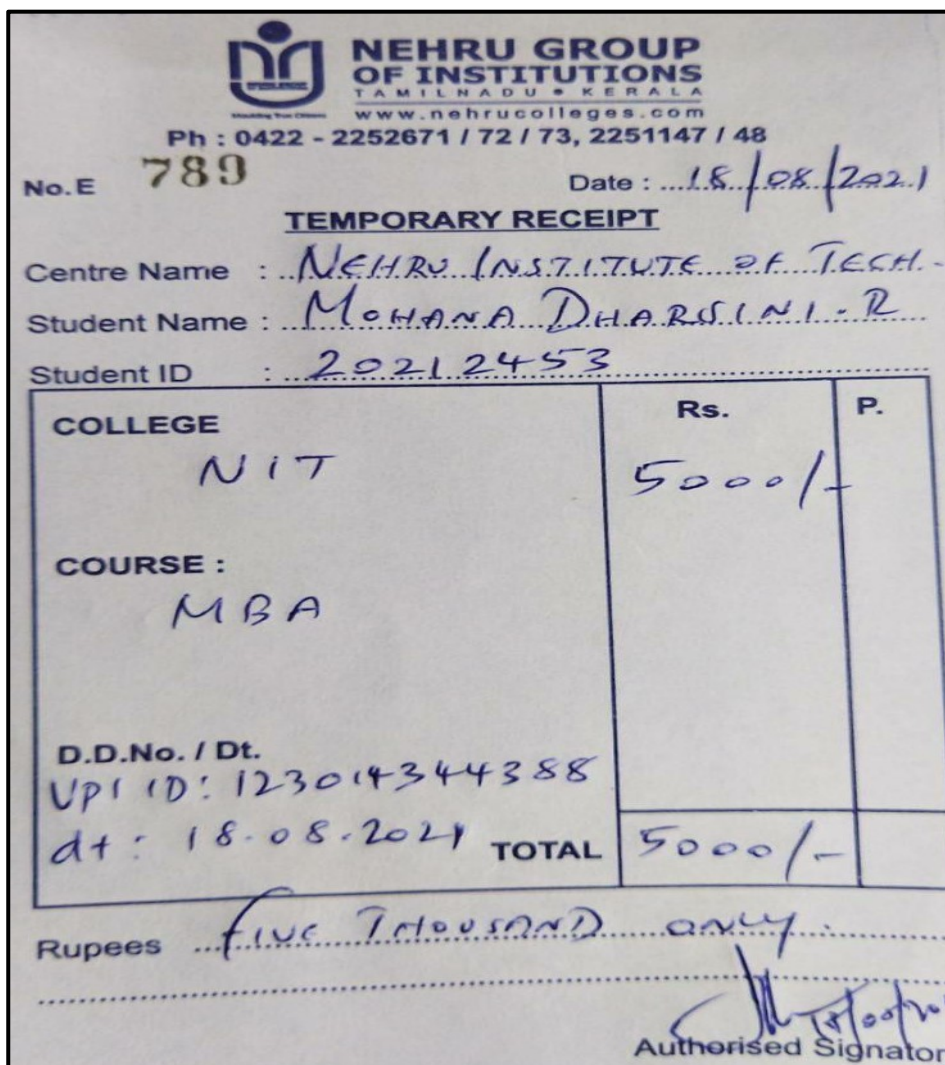 NEHRU GROUP
OF INSTITUTIONS
TAMILNADU • KERALA
www.nehrucolleges.com
Ph : 0422 - 2252671 / 72 / 73, 2251147 / 48
No.E 789 Date : 18/08/2021
TEMPORARY RECEIPT
Centre Name : NEHRU INSTITUTE OF TECH.
Student Name : MOHANA DHARSINI.R
Student ID : 20212453
COLLEGE Rs. P.
NIT 5000/-
COURSE :
MBA
D.D.No. / Dt.
UPI ID: 123014344388
dt: 18.08.2021 TOTAL 5000/-
Rupees FIVE THOUSAND ONLY.
Authorised Signator